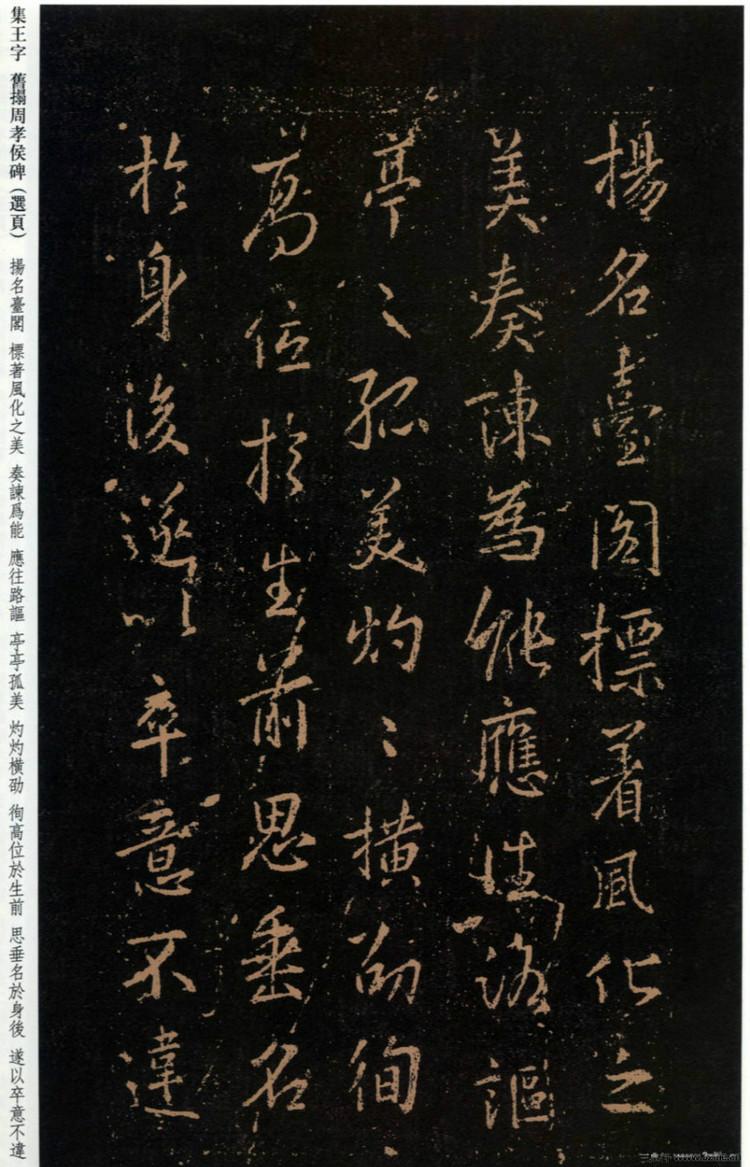 揚名臺閣標著風化之
美奏諫為能應往路謳
亭〻孤美灼〻橫劭徇
高位於生前思垂名
於身後遂以卒意不違
集王字 舊搨周孝侯碑（選頁） 揚名臺閣 標著風化之美 奏諫爲能 應往路謳 亭亭孤美 灼灼橫劭 徇高位於生前 思垂名於身後 遂以卒意不違